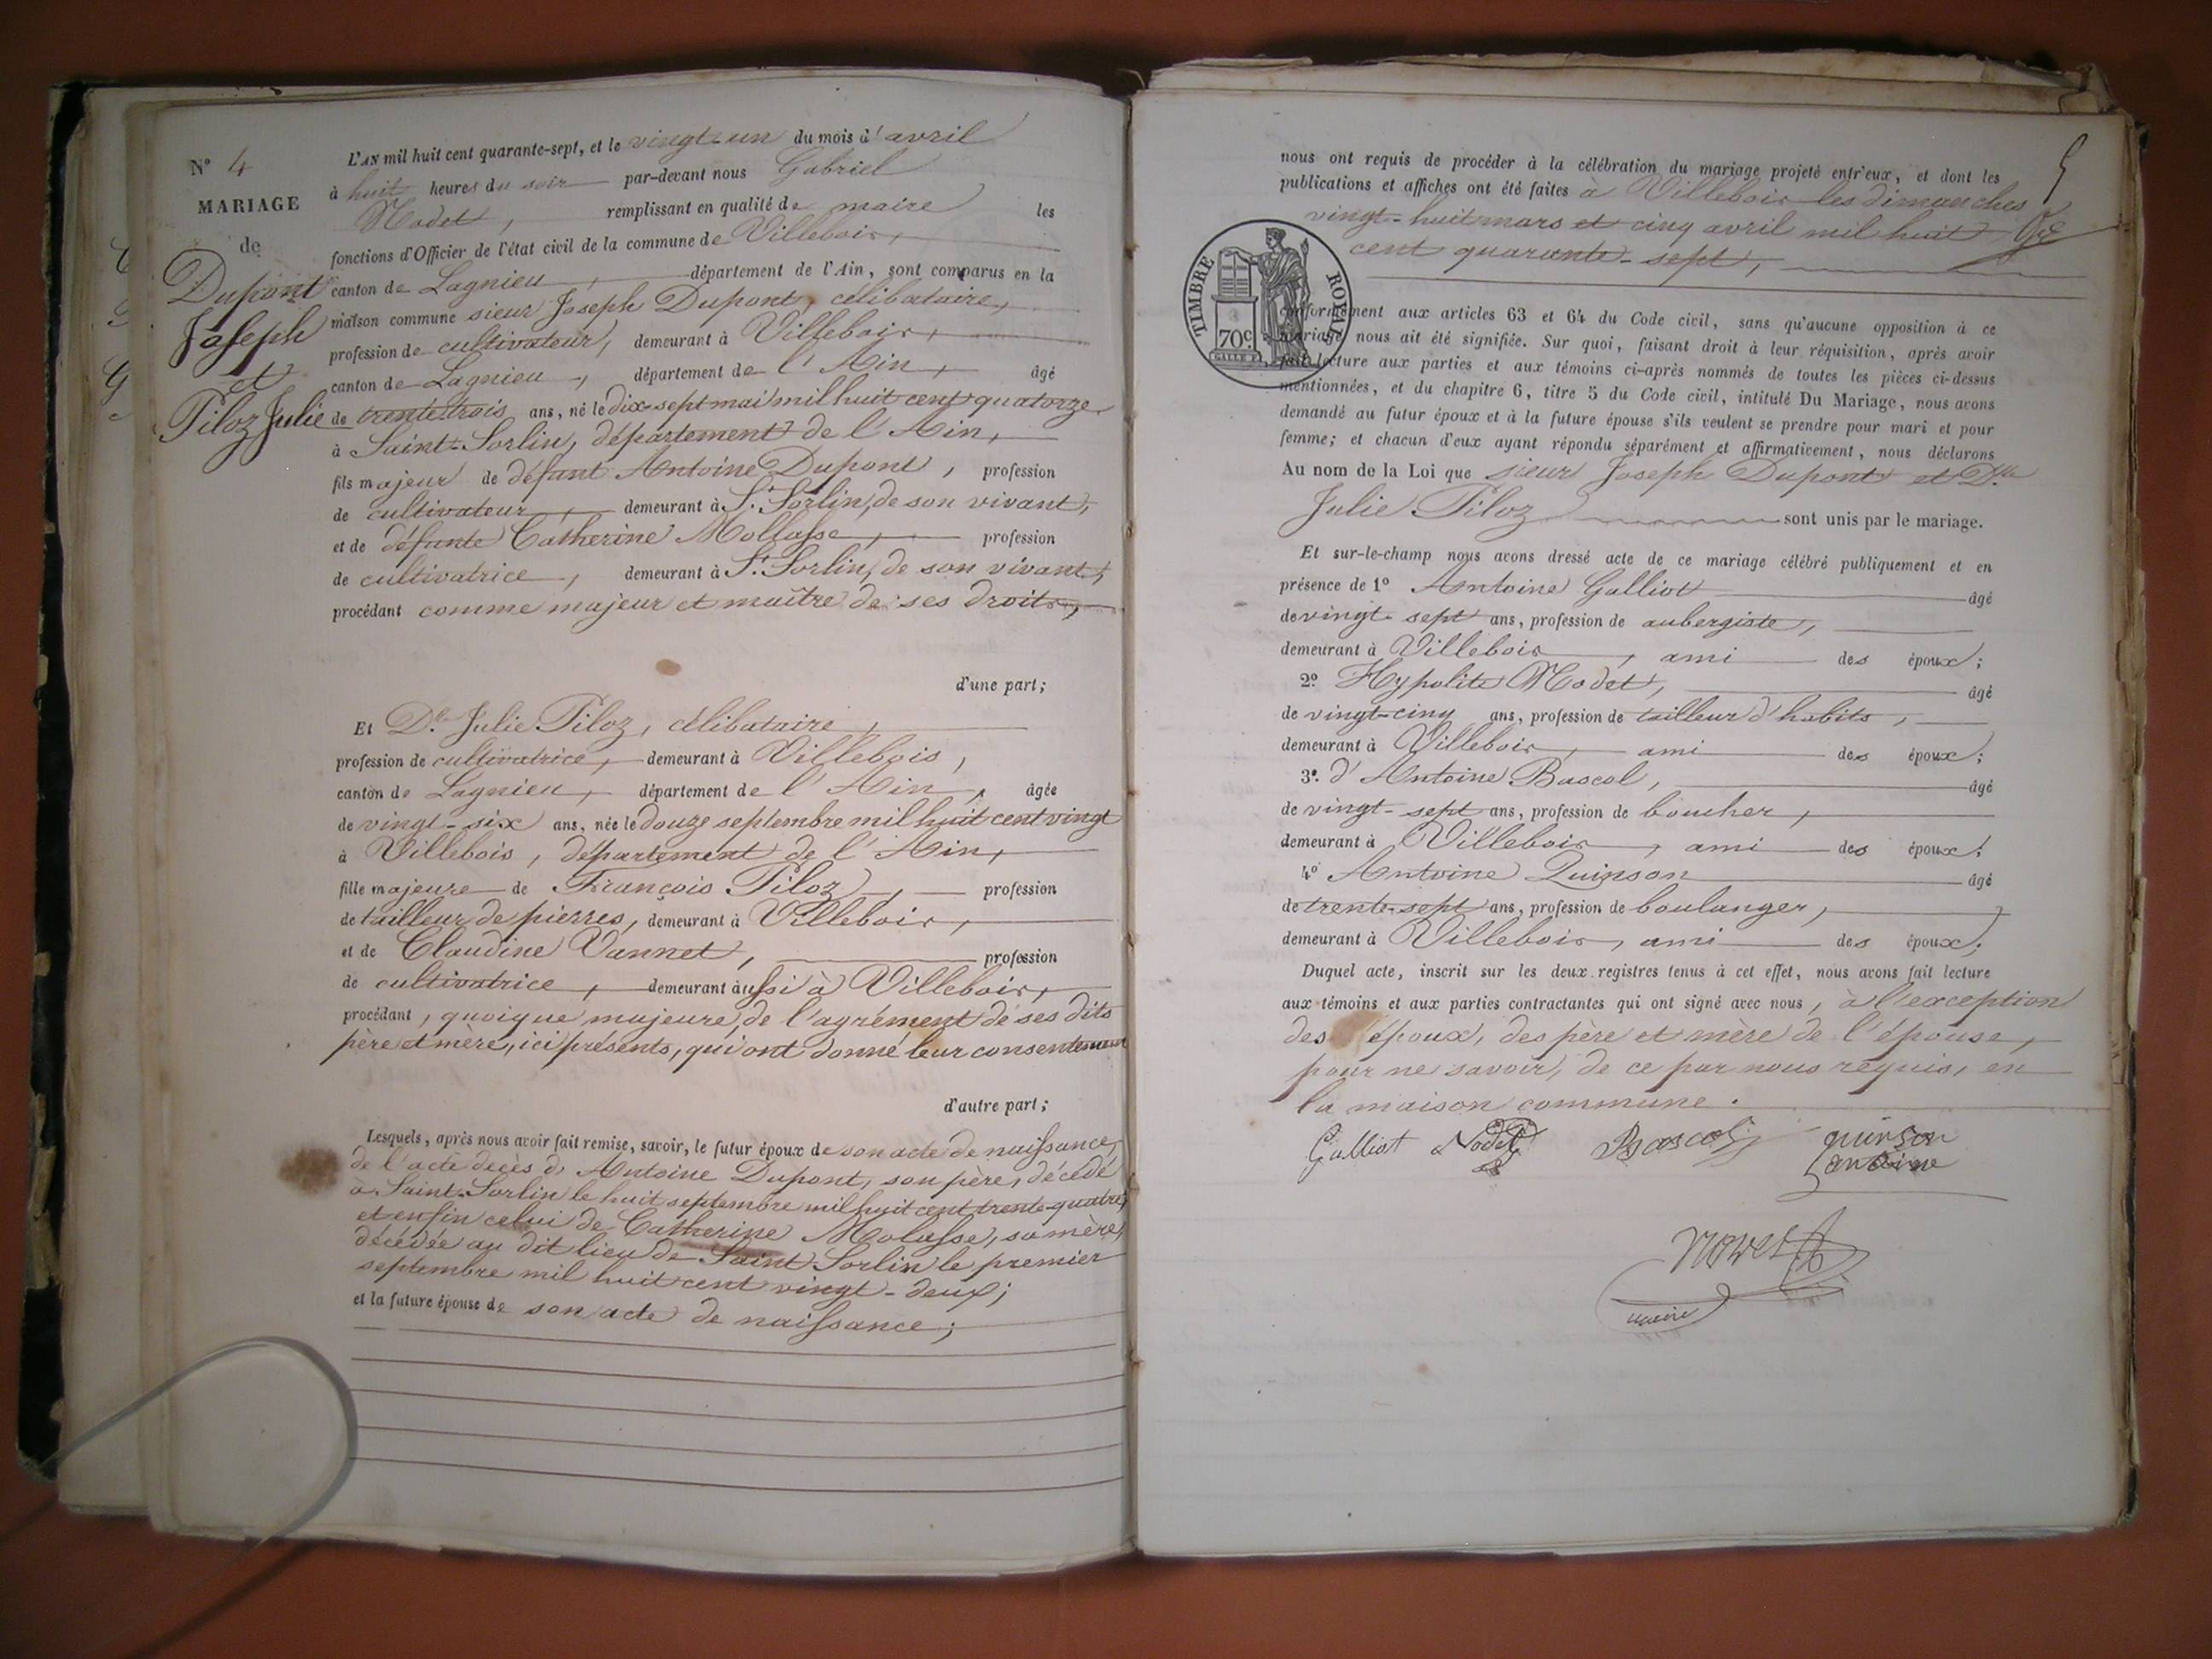 N.º 4
MARIAGE
de
Dupont
Joseph
et
Piloz Julie
L'AN mil huit cent quarante-sept, et le vingt-un du mois d'avril
à huit heures du soir par-devant nous Gabriel
Nodet, remplissant en qualité de maire les
fonctions d'Officier de l'état civil de la commune de Villebois,
canton de Lagnieu, département de l'Ain, sont comparus en la
maison commune sieur Joseph Dupont, célibataire,
profession de cultivateur, demeurant à Villebois,
canton de Lagnieu, département de l'Ain, âgé
de trente-trois ans, né le dix-sept mai mil huit cent quatorze
à Saint-Sorlin, département de l'Ain,
fils majeur de défunt Antoine Dupont, profession
de cultivateur, demeurant à St. Sorlin, de son vivant,
et de défunte Catherine Mollasse, profession
de cultivatrice, demeurant à St. Sorlin, de son vivant,
procédant comme majeur et maître de ses droits,
d'une part;
Et Dlle. Julie Piloz, célibataire,
profession de cultivatrice, demeurant à Villebois,
canton de Lagnieu, département de l'Ain, âgée
de vingt-six ans, née le douze septembre mil huit cent vingt
à Villebois, département de l'Ain,
fille majeure de François Piloz, profession
de tailleur de pierres, demeurant à Villebois,
et de Claudine Vannet, profession
de cultivatrice, demeurant aussi à Villebois,
procédant, quoique majeure, de l'agrément de ses dits
père et mère, ici présents, qui ont donné leur consentement
d'autre part;
Lesquels, après nous avoir fait remise, savoir, le futur époux de son acte de naissance,
de l'acte décès d' Antoine Dupont, son père, décédé
à Saint-Sorlin le huit septembre mil huit cent trente-quatre,
et enfin celui de Catherine Molasse, sa mère,
décédée au dit lieu de Saint-Sorlin le premier
septembre mil huit cent vingt-deux;
et la future épouse de son acte de naissance;
5
nous ont requis de procéder à la célébration du mariage projeté entr'eux, et dont les
publications et affiches ont été faites à Villebois les dimanches
vingt-huit mars et cinq avril mil huit
cent quarante-sept,
TIMBRE ROYAL
70c
conformément aux articles 63 et 64 du Code civil, sans qu'aucune opposition à ce
mariage nous ait été signifiée. Sur quoi, faisant droit à leur réquisition, après avoir
fait lecture aux parties et aux témoins ci-après nommés de toutes les pièces ci-dessus
mentionnées, et du chapitre 6, titre 5 du Code civil, intitulé Du Mariage, nous avons
demandé au futur époux et à la future épouse s'ils veulent se prendre pour mari et pour
femme; et chacun d'eux ayant répondu séparément et affirmativement, nous déclarons
Au nom de la Loi que sieur Joseph Dupont et Dlle
Julie Piloz sont unis par le mariage.
Et sur-le-champ nous avons dressé acte de ce mariage célébré publiquement et en
présence de 1º Antoine Galliot âgé
de vingt-sept ans, profession de aubergiste,
demeurant à Villebois, ami des époux;
2º Hypolite Nodet, âgé
de vingt-cinq ans, profession de tailleur d'habits,
demeurant à Villebois, ami des époux;
3º d'Antoine Bascol, âgé
de vingt-sept ans, profession de boucher,
demeurant à Villebois, ami des époux;
4º Antoine Quinson âgé
de trente-sept ans, profession de boulanger,
demeurant à Villebois, ami des époux;
Duquel acte, inscrit sur les deux registres tenus à cet effet, nous avons fait lecture
aux témoins et aux parties contractantes qui ont signé avec nous, à l'exception
des époux, des père et mère de l'épouse,
pour ne savoir, de ce par nous requis, en
la maison commune.
Galliot Nodet Bascol quinson
antoine
Nodet
maire